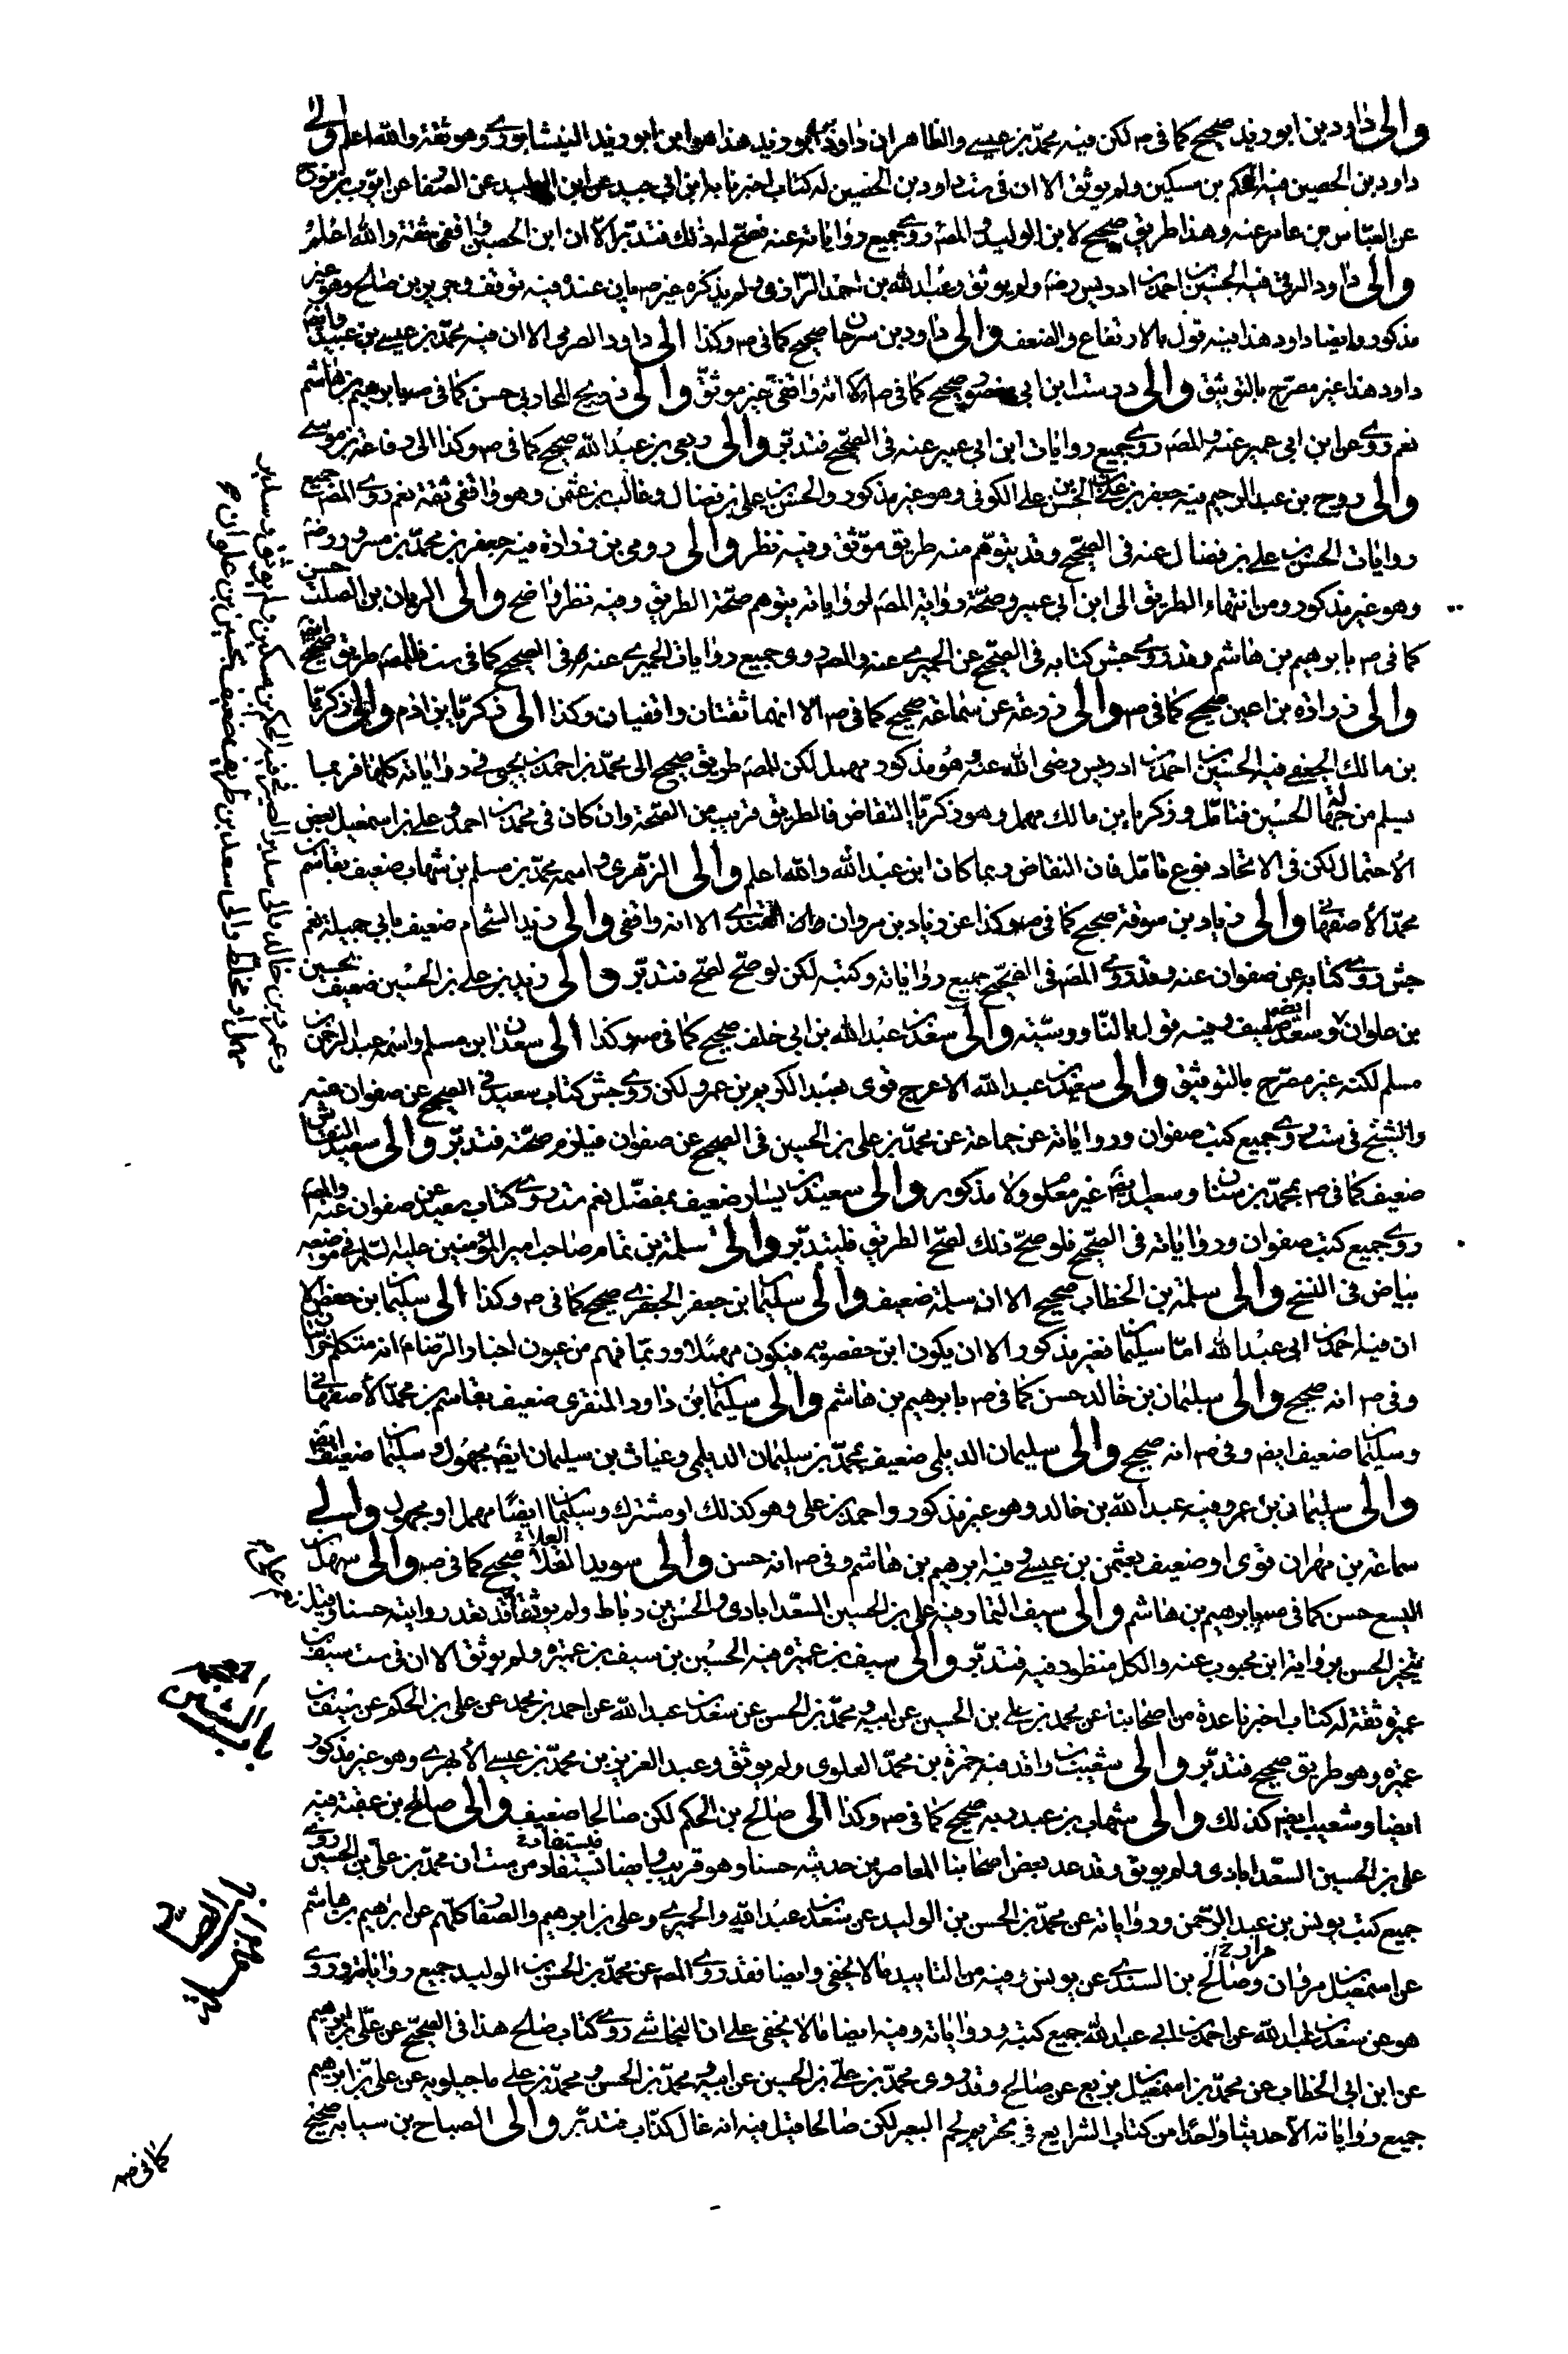 والى داود بن ابو زيد صحيح كما في صه لكن فيه محمد بن عيسى والظاهر ان داود بن ابو زيد هذا هو ابن ابو زيد النيشابوري وهو ثقة والله اعلم والى
داود بن الحصين فيه الحكم بن مسكين ولم يوثق الا ان في ست داود بن الحصين له كتاب اخبرنا به ابن ابي جيد عن ابن الوليد عن الصفار عن ايوب بن نوح
عن العباس بن عامر عنه وهذا طريق صحيح لابن الوليد والمصه روى جميع رواياته عنه فتصح له ذلك فتدبر الا ان ابن الحصين واقفي ثقة والله اعلم
والى داود الرقي فيه الحسين بن احمد بن ادريس رضه ولم يوثق وعبد الله بن احمد الرازي ولم يذكره غير صه بان عنده فيه توقف وجرير بن صالح وهو غير
مذكور وايضا داود هذا فيه قول بالارتفاع والضعف والى داود بن سرحان صحيح كما في صه وكذا الى داود الصرمي الا ان فيه محمد بن عيسى بن عبيد وايضا
داود هذا غير مصرح بالتوثيق والى درست ابن ابي منصور صحيح كما في صه الا انه واقفي غير موثق والى ذريح المحاربي حسن كما في صه بابرهيم بن هاشم
نعم روى عن ابن ابي عمير عنه والمصه روى جميع روايات ابن ابي عمير عنه في الصحيح فتدبر والى ربعي بن عبد الله صحيح كما في صه وكذا الى رفاعة بن موسى
والى روح بن عبد الرحيم فيه جعفر بن علي بن الحسن بن علي الكوفي وهو غير مذكور والحسن بن علي بن فضال وغالب بن عثمن وهو واقفي ثقة نعم روى المصه جميع
روايات الحسن بن علي بن فضال عنه في الصحيح وقد يتوهم منه طريق موثق وفيه نظر والى رومي بن زرارة فيه جعفر بن محمد بن مسرور رضه
وهو غير مذكور ومن انتهاء الطريق الى ابن ابي عمير وصحة رواية المصه لرواياته يتوهم صحة الطريق وفيه نظر واضح والى الريان بن الصلت حسن
كما في صه بابرهيم بن هاشم وقد روى جش كتابه في الصحيح عن الحميري عنه والمصه روى جميع روايات الحميري عنه في الصحيح كما في ست فللمصه طريق صحيح ايضا
والى زرارة بن اعين صحيح كما في صه والى زرعة عن سماعة صحيح كما في صه الا انهما ثقتان واقفيان وكذا الى زكريا بن ادم والى زكريا
بن مالك الجعفي فيه الحسين بن احمد بن ادريس رضى الله عنه وهو مذكور مهمل لكن للمصه طريق صحيح الى محمد بن احمد بن يحيى في رواياته كلها فربما
يسلم من جهة الحسين فتامل وزكرياء بن مالك مهمل وهو زكريا النقاض فالطريق قريب من الصحة وان كان في محمد بن احمد وعلي بن اسمعيل بعض
الاحتمال لكن في الاتحاد نوع تامل فان النقاض ربما كان ابن عبد الله والله اعلم والى الزهري واسمه محمد بن مسلم بن شهاب ضعيف بقاسم بن
محمد الاصفهاني والى زياد بن سوقة صحيح كما في صه وكذا عن زياد بن مروان القندي الا انه واقفي والى زيد الشحام ضعيف بابي جميلة نعم
جش روى كتابه عن صفوان عنه وقد روى المصه في الصحيح جميع رواياته وكتبه لكن لو صح لصح فتدبر والى زيد بن علي بن الحسين ضعيف بحسين
بن علوان وسعد ضعيف ايضا وفيه قول بالناووسية والى سعد بن عبد الله بن ابي خلف صحيح كما في صه وكذا الى سعدان ابن مسلم واسمه عبد الرحمن بن
مسلم لكنه غير مصرح بالتوثيق والى سعيد بن عبد الله الاعرج قوى بعبد الكريم بن عمرو لكن روى جش كتاب سعيد في الصحيح عن صفوان عنه
والشيخ في ست روى جميع كتب صفوان ورواياته عن جماعة عن محمد بن علي بن الحسين في الصحيح عن صفوان فيلزم صحته فتدبر والى سعيد النقاش
ضعيف كما في صه بمحمد بن سنان وسعيد ايضا غير معلوم ولا مذكور والى سعيد بن يسار ضعيف بمفضل نعم ست روى كتاب سعيد عن صفوان عنه والمصه
روى جميع كتب صفوان ورواياته في الصحيح فلو صح ذلك لصح الطريق فليتدبر والى سلمة بن تمام صاحب امير المؤمنين عليه السلم في موضعه
بياض في النسخ والى سلمة بن الخطاب صحيح الا ان سلمة ضعيف والى سليمان بن جعفر الجعفري صحيح كما في صه وكذا الى سليمان بن حفص الا
ان فيه احمد بن ابي عبد الله اما سليمان فغير مذكور الا ان يكون ابن حفصويه فيكون مهملا وربما فهم من عيون اخبار الرضا انه متكلم خراسان
وفي صه انه صحيح والى سليمان بن خالد حسن كما في صه بابرهيم بن هاشم والى سليمان بن داود المنقري ضعيف بقاسم بن محمد الاصفهاني
وسليمان ضعيف ايضه وفي صه انه صحيح والى سليمان الديلمي ضعيف بمحمد بن سليمان الديلمي وغياث بن سليمان ايضه مجهول وسليمان ضعيف ايضه
والى سليمان بن عمرو فيه عبد الله بن خالد وهو غير مذكور واحمد بن علي وهو كذلك او مشترك وسليمان ايضا مهمل او مجهول والى
سماعة بن مهران قوى او ضعيف بعثمن بن عيسى وفيه ابرهيم بن هاشم وفي صه انه حسن والى سويد القلا صحيح كما في صه والى سهل بن
اليسع حسن كما في صه بابرهيم بن هاشم والى سيف التمار فيه علي بن الحسين السعدابادي والحسن بن رباط ولم يوثقا قد تعد روايته حسنا وقيل
ينجبر الحسن برواية ابن محبوب عنه والكل منظور فيه فتدبر والى سيف بن عميره فيه الحسين بن سيف بن عميره ولم يوثق الا ان في ست سيف بن
عميره ثقة له كتاب اخبرنا عدة من اصحابنا عن محمد بن علي بن الحسين عن ابيه ومحمد بن الحسن عن سعد بن عبد الله عن احمد بن محمد عن علي بن الحكم عن سيف بن
عميره وهو طريق صحيح فتدبر والى شعيب بن واقد فيه حمزة بن محمد العلوي ولم يوثق وعبد العزيز بن محمد بن عيسى الابهري وهو غير مذكور
ايضا وشعيب ايضه كذلك والى شهاب بن عبد ربه صحيح كما في صه وكذا الى صالح بن الحكم لكن صالحا ضعيف والى صالح بن عقبة فيه
علي بن الحسين السعدابادي ولم يوثق وقد عد بعض اصحابنا المعاصرين حديثه حسنا وهو قريب وايضا يستفاد من ست ان محمد بن علي بن الحسين روى
جميع كتب يونس بن عبد الرحمن ورواياته عن محمد بن الحسن بن الوليد عن سعد بن عبد الله والحميري وعلي بن ابرهيم والصفار كلهم عن ابرهيم بن هاشم
عن اسمعيل بن مرار وصالح بن السندي عن يونس وفيه من التاييد ما لا يخفى وايضا فقد روى المصه عن محمد بن الحسن بن الوليد جميع رواياته وروى
هو عن سعد بن عبد الله عن احمد بن ابي عبد الله جميع كتبه ورواياته وفيه ايضا ما لا يخفى على ان النجاشي روى كتاب صالح هذا في الصحيح عن علي بن ابرهيم
عن ابن ابي الخطاب عن محمد بن اسمعيل بن بزيع عن صالح وقد روى محمد بن علي بن الحسين عن ابيه ومحمد بن الحسن ومحمد بن علي ماجيلويه عن علي بن ابرهيم
جميع رواياته الا حديثا واحدا من كتاب الشرايع في تحريم لحم البعير لكن صالحا قيل فيه انه غال كذاب فتدبر والى الصباح بن سيابه صحيح
كما في صه
باب الشين